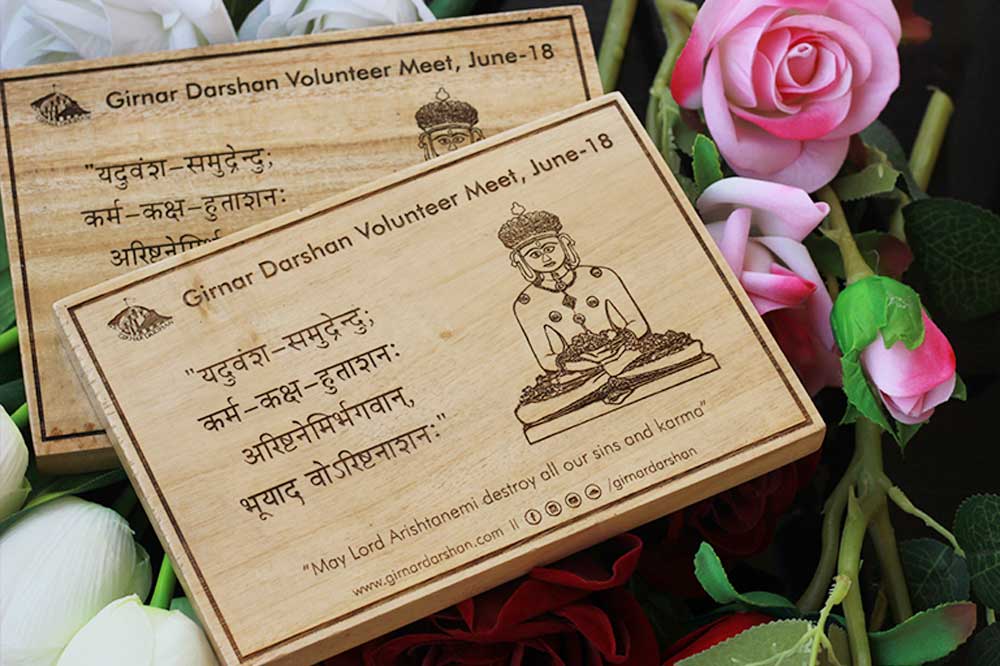 Girnar Darshan Volunteer Meet, June-18
"यदुवंश-समुद्रेन्दु;
कर्म-कक्ष-हुताशनः
Girnar Darshan Volunteer Meet, June-18
GIRNAR DARSHAN
"यदुवंश-समुद्रेन्दु;
कर्म-कक्ष-हुताशनः
अरिष्टनेमिर्भगवान्,
भूयाद वोऽरिष्टनाशनः"
"May Lord Arishtanemi destroy all our sins and karma"
www.girnardarshan.com || /girnardarshan